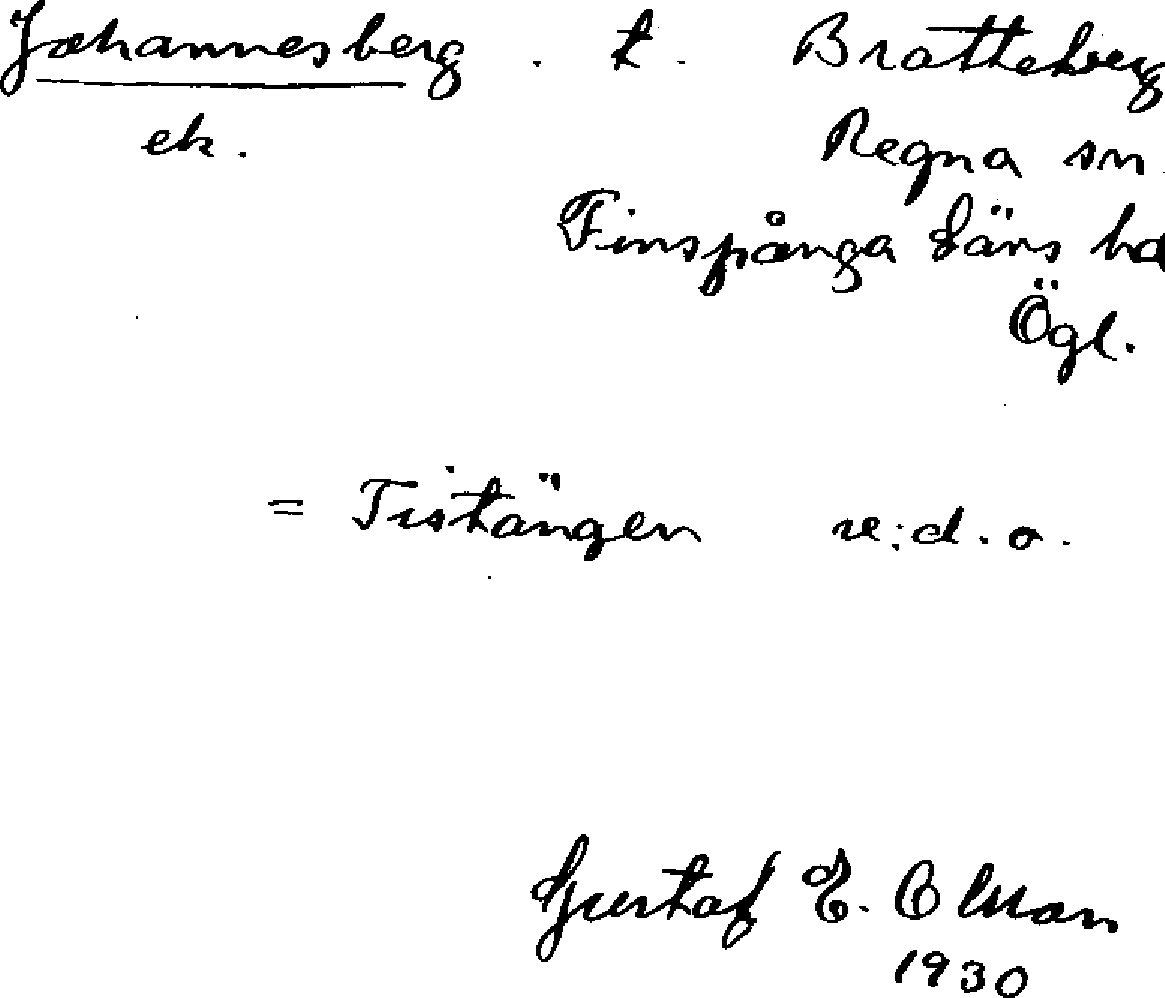 Johannesberg . t. Bratteberg
ek. Regna sn.
Finspånga läns hd
Ögl.
= Tistängen se: d. o.
Gustaf E. Olsson
1930